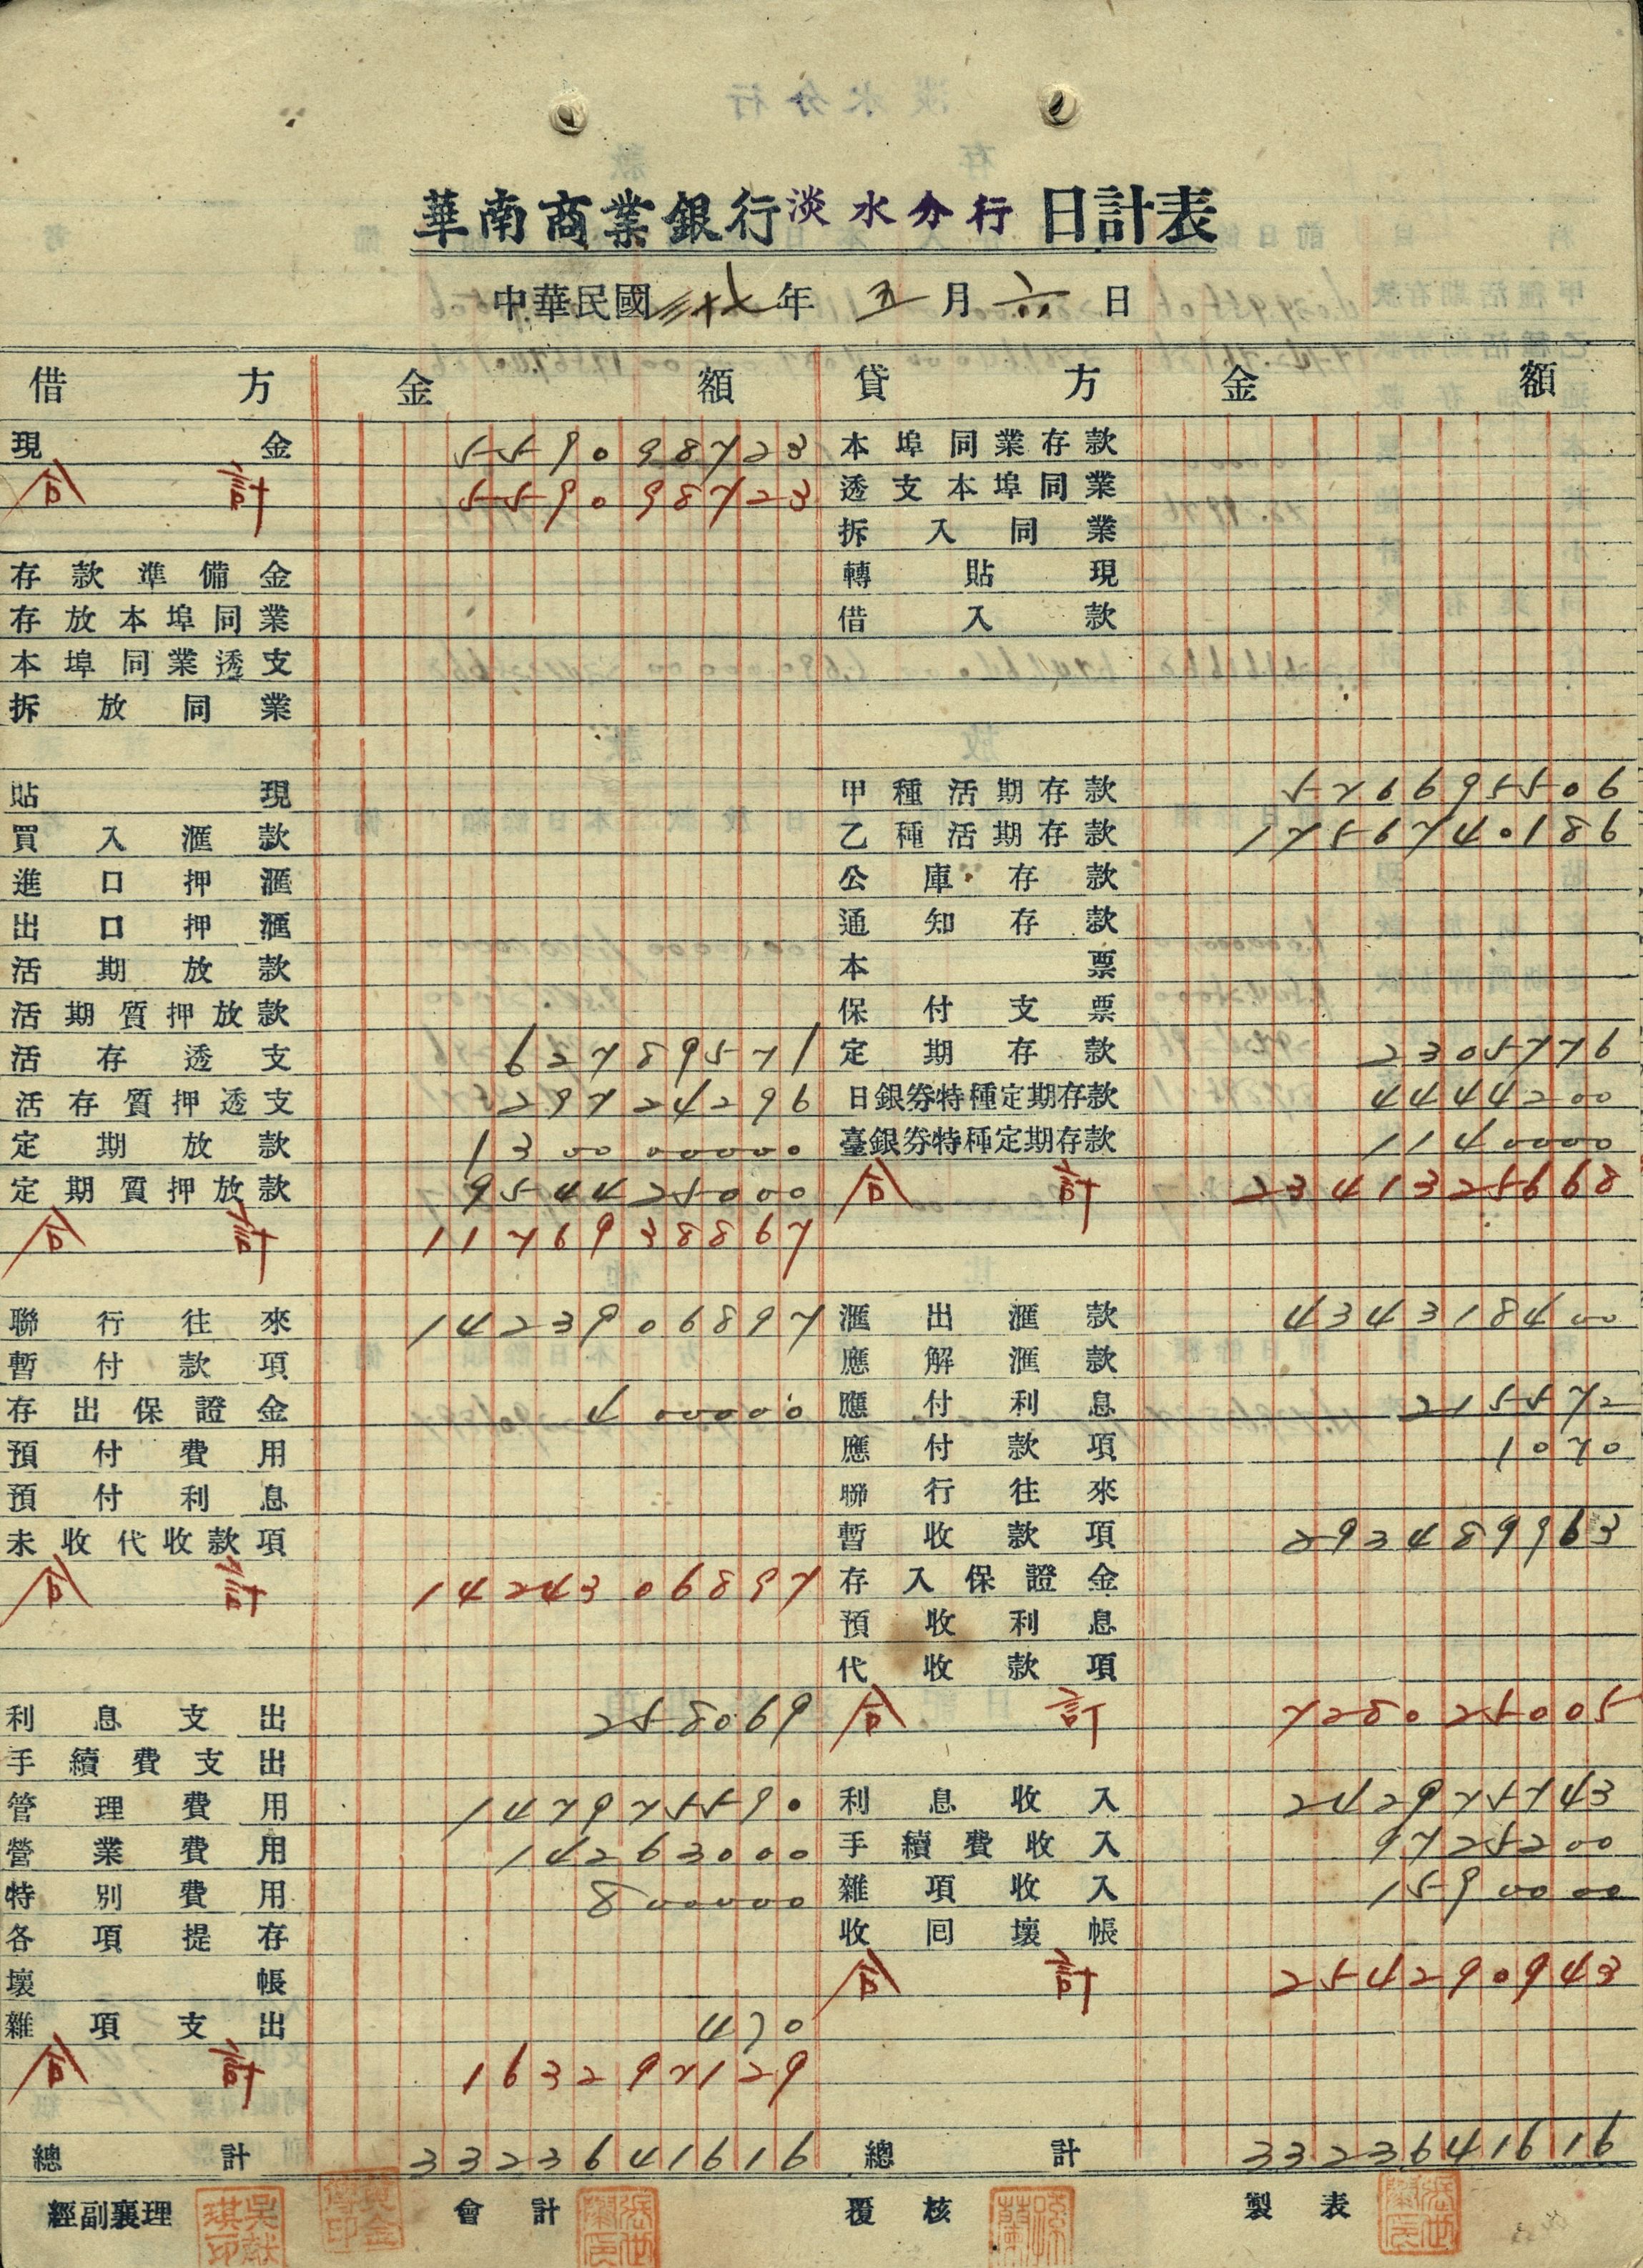 華南商業銀行淡水分行日計表
中華民國三十七年五月六日
借方 金額 貸方 金額
現金 559098723 本埠同業存款
合計 559098723 透支本埠同業
拆入同業
存款準備金 轉貼現
存放本埠同業 借入款
本埠同業透支
拆放同業
貼現 甲種活期存款 576695506
買入滙款 乙種活期存款 1756740186
進口押滙 公庫存款
出口押滙 通知存款
活期放款 本票
活期質押放款 保付支票
活存透支 62789571 定期存款 2305776
活存質押透支 29724296 日銀券特種定期存款 4444200
定期放款 130000000 臺銀券特種定期存款 1140000
定期質押放款 954425000 合計 2341325668
合計 1176938867
聯行往來 1423906897 滙出滙款 434318400
暫付款項 應解滙款
存出保證金 400000 應付利息 215572
預付費用 應付款項 1070
預付利息 聯行往來
未收代收款項 暫收款項 293489963
合計 1424306897 存入保證金
預收利息
代收款項
利息支出 258069 合計 728025005
手續費支出
管理費用 147975590 利息收入 242975743
營業費用 14263000 手續費收入 9725200
特別費用 800000 雜項收入 1590000
各項提存 收回壞帳
壞帳 合計 254290943
雜項支出 470
合計 163297129
總計 3323641616 總計 3323641616
經副襄理 吳献琪印 會計 覆核 製表